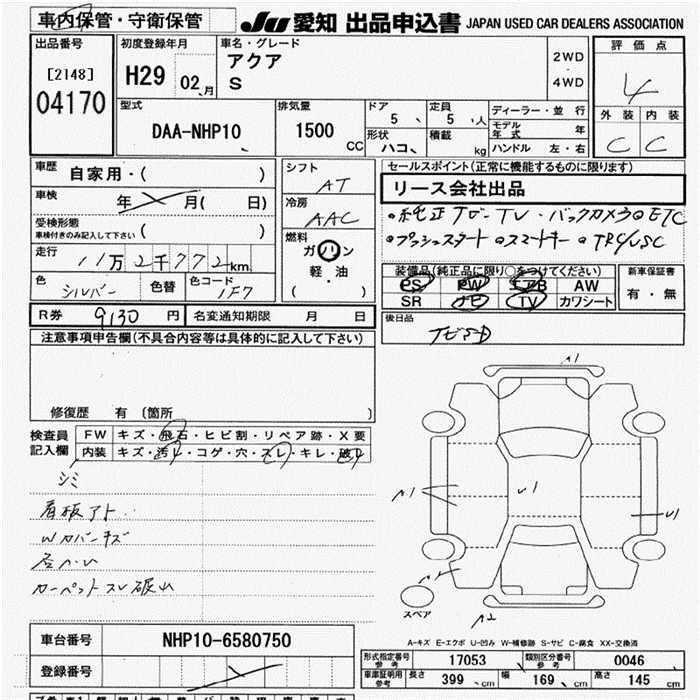 車内保管・守衛保管
JU 愛知 出品申込書 JAPAN USED CAR DEALERS ASSOCIATION
出品番号
[2148]
04170
初度登録年月
H29 02月
車名・グレード
アクア
S
2WD
・
4WD
評価点
4
外装 内装
C C
型式
DAA-NHP10
排気量
1500 CC
ドア 5 定員 5人
形状 ハコ 積載 kg
ディーラー・並行
モデル年式 年
ハンドル 左・右
車歴
自家用・( )
車検
年 月( 日)
受検形態
車検付きのみ記入して下さい ( )
走行
11万2千772km
色 シルバー 色替 色コード 1F7
シフト
AT
冷房
AAC
燃料
ガソリン
軽・油
( )
セールスポイント(正常に機能するものに限ります)
リース会社出品
純正ナビーTV・バックカメラ ETC
プッシュスタート スマートキー TRC/VSC
装備品(純正品に限り○をつけてください)
PS PW エアB AW
SR ナビ TV カワシート
新車保証書
有・無
後日品
ナビSD
R券 9130円 名変通知期限 月 日
注意事項申告欄(不具合内容等は具体的に記入して下さい)
修復歴 有 (箇所 )
検査員記入欄
FW キズ・飛石・ヒビ割・リペア跡・X要
内装 キズ・汚レ・コゲ・穴・スレ・キレ・破レ
シミ
看板アト
Wカバーキズ
カーペットスレ破レ
A1
A1
U1
U1
A2
スペア
A-キズ E-エクボ U-凹み W-補修跡 S-サビ C-腐食 XX-交換済
車台番号 NHP10-6580750
登録番号
形式指定番号 参考 17053 類別区分番号 参考 0046
車庫証明用 参考 長さ 399 cm 幅 169 cm 高さ 145 cm